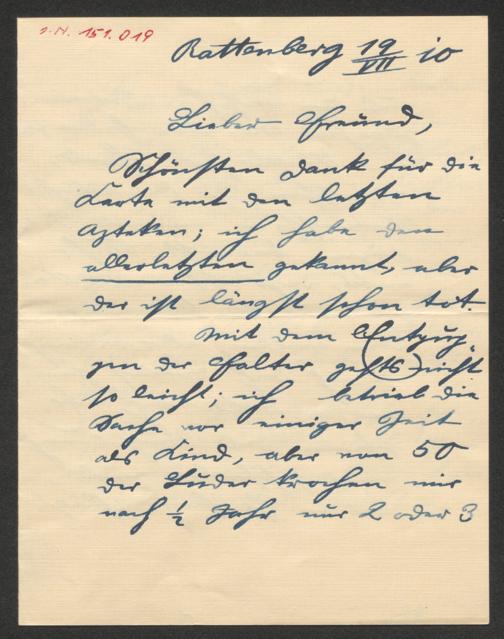 I.N. 151.019
Rattenberg 19/VII 10
Lieber Freund,
Schönsten Dank für die
Karte mit den letzten
Azteken; ich habe den
allerletzten gekannt, aber
der ist längst schon tot.
Mit dem Entpup-
pen der Falter geht's nicht
so leicht; ich betrieb die
Sache vor einiger Zeit
als Kind, aber von 50
der Luder krochen mir
nach ½ Jahr nur 2 oder 3